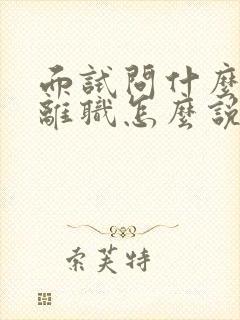 而試問什麼
離職怎麼說
索芙特